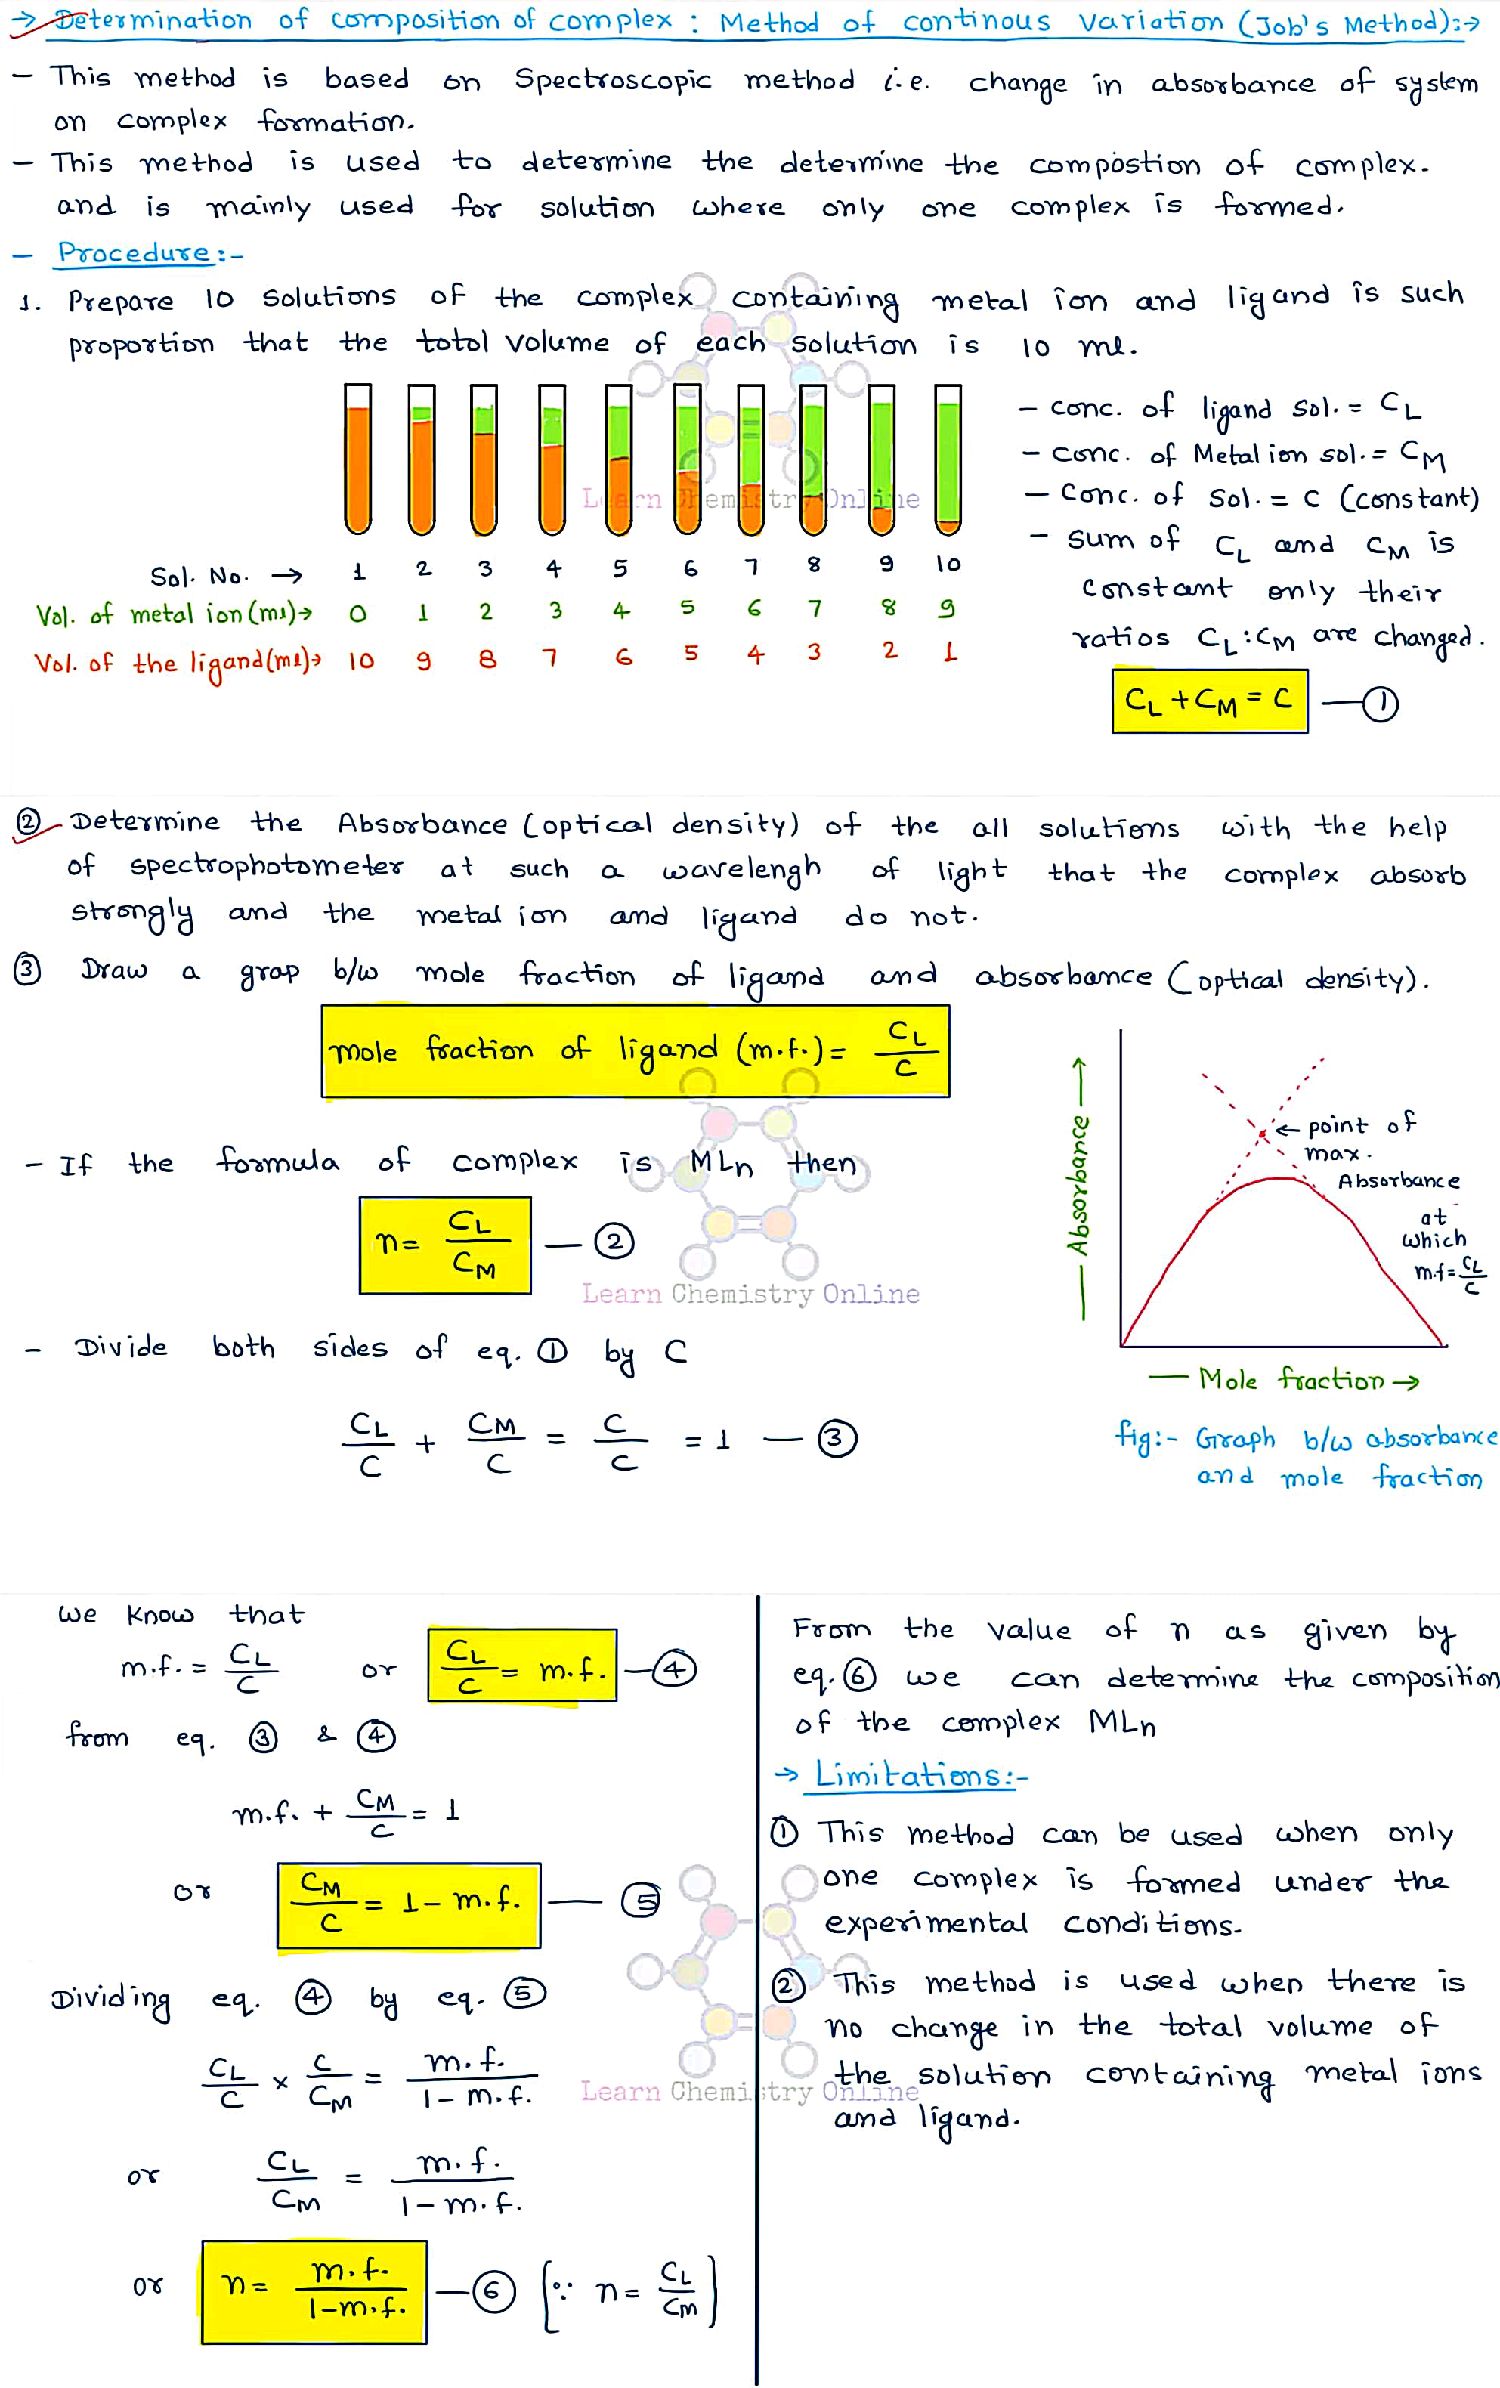 → Determination of composition of complex : Method of continous variation (Job's Method):→
- This method is based on Spectroscopic method i.e. change in absorbance of system
on complex formation.
- This method is used to determine the determine the compostion of complex.
and is mainly used for solution where only one complex is formed.
- Procedure:-
1. Prepare 10 solutions of the complex containing metal ion and ligand is such
proportion that the totol volume of each solution is 10 ml.
- conc. of ligand sol. = CL
- conc. of Metal ion sol. = CM
- conc. of sol. = C (constant)
- sum of CL and CM is
constant only their
ratios CL:CM are changed.
CL + CM = C —①
Learn Chemistry Online
Sol. No. → 1 2 3 4 5 6 7 8 9 10
Vol. of metal ion (ml)→ 0 1 2 3 4 5 6 7 8 9
Vol. of the ligand(ml)→ 10 9 8 7 6 5 4 3 2 1
② Determine the Absorbance (optical density) of the all solutions with the help
of spectrophotometer at such a wavelengh of light that the complex absorb
strongly and the metal ion and ligand do not.
③ Draw a grap b/w mole fraction of ligand and absorbance (optical density).
mole fraction of ligand (m.f.) = CL/C
- If the formula of complex is MLn then
n = CL/CM — ②
Learn Chemistry Online
- Divide both sides of eq. ① by C
CL/C + CM/C = C/C = 1 — ③
— Absorbance →
← point of
max.
Absorbance
at
which
m.f = CL/C
— Mole fraction →
fig:- Graph b/w absorbance
and mole fraction
we know that
m.f. = CL/C or CL/C = m.f. —④
from eq. ③ & ④
m.f. + CM/C = 1
or CM/C = 1 - m.f. — ⑤
Dividing eq. ④ by eq. ⑤
CL/C × C/CM = m.f./1 - m.f.
or CL/CM = m.f./1 - m.f.
or n = m.f./1-m.f. —⑥ [∵ n = CL/CM]
From the value of n as given by
eq. ⑥ we can determine the composition
of the complex MLn
→ Limitations:-
① This method can be used when only
one complex is formed under the
experimental conditions.
② This method is used when there is
no change in the total volume of
the solution containing metal ions
and ligand.
Learn Chemistry Online